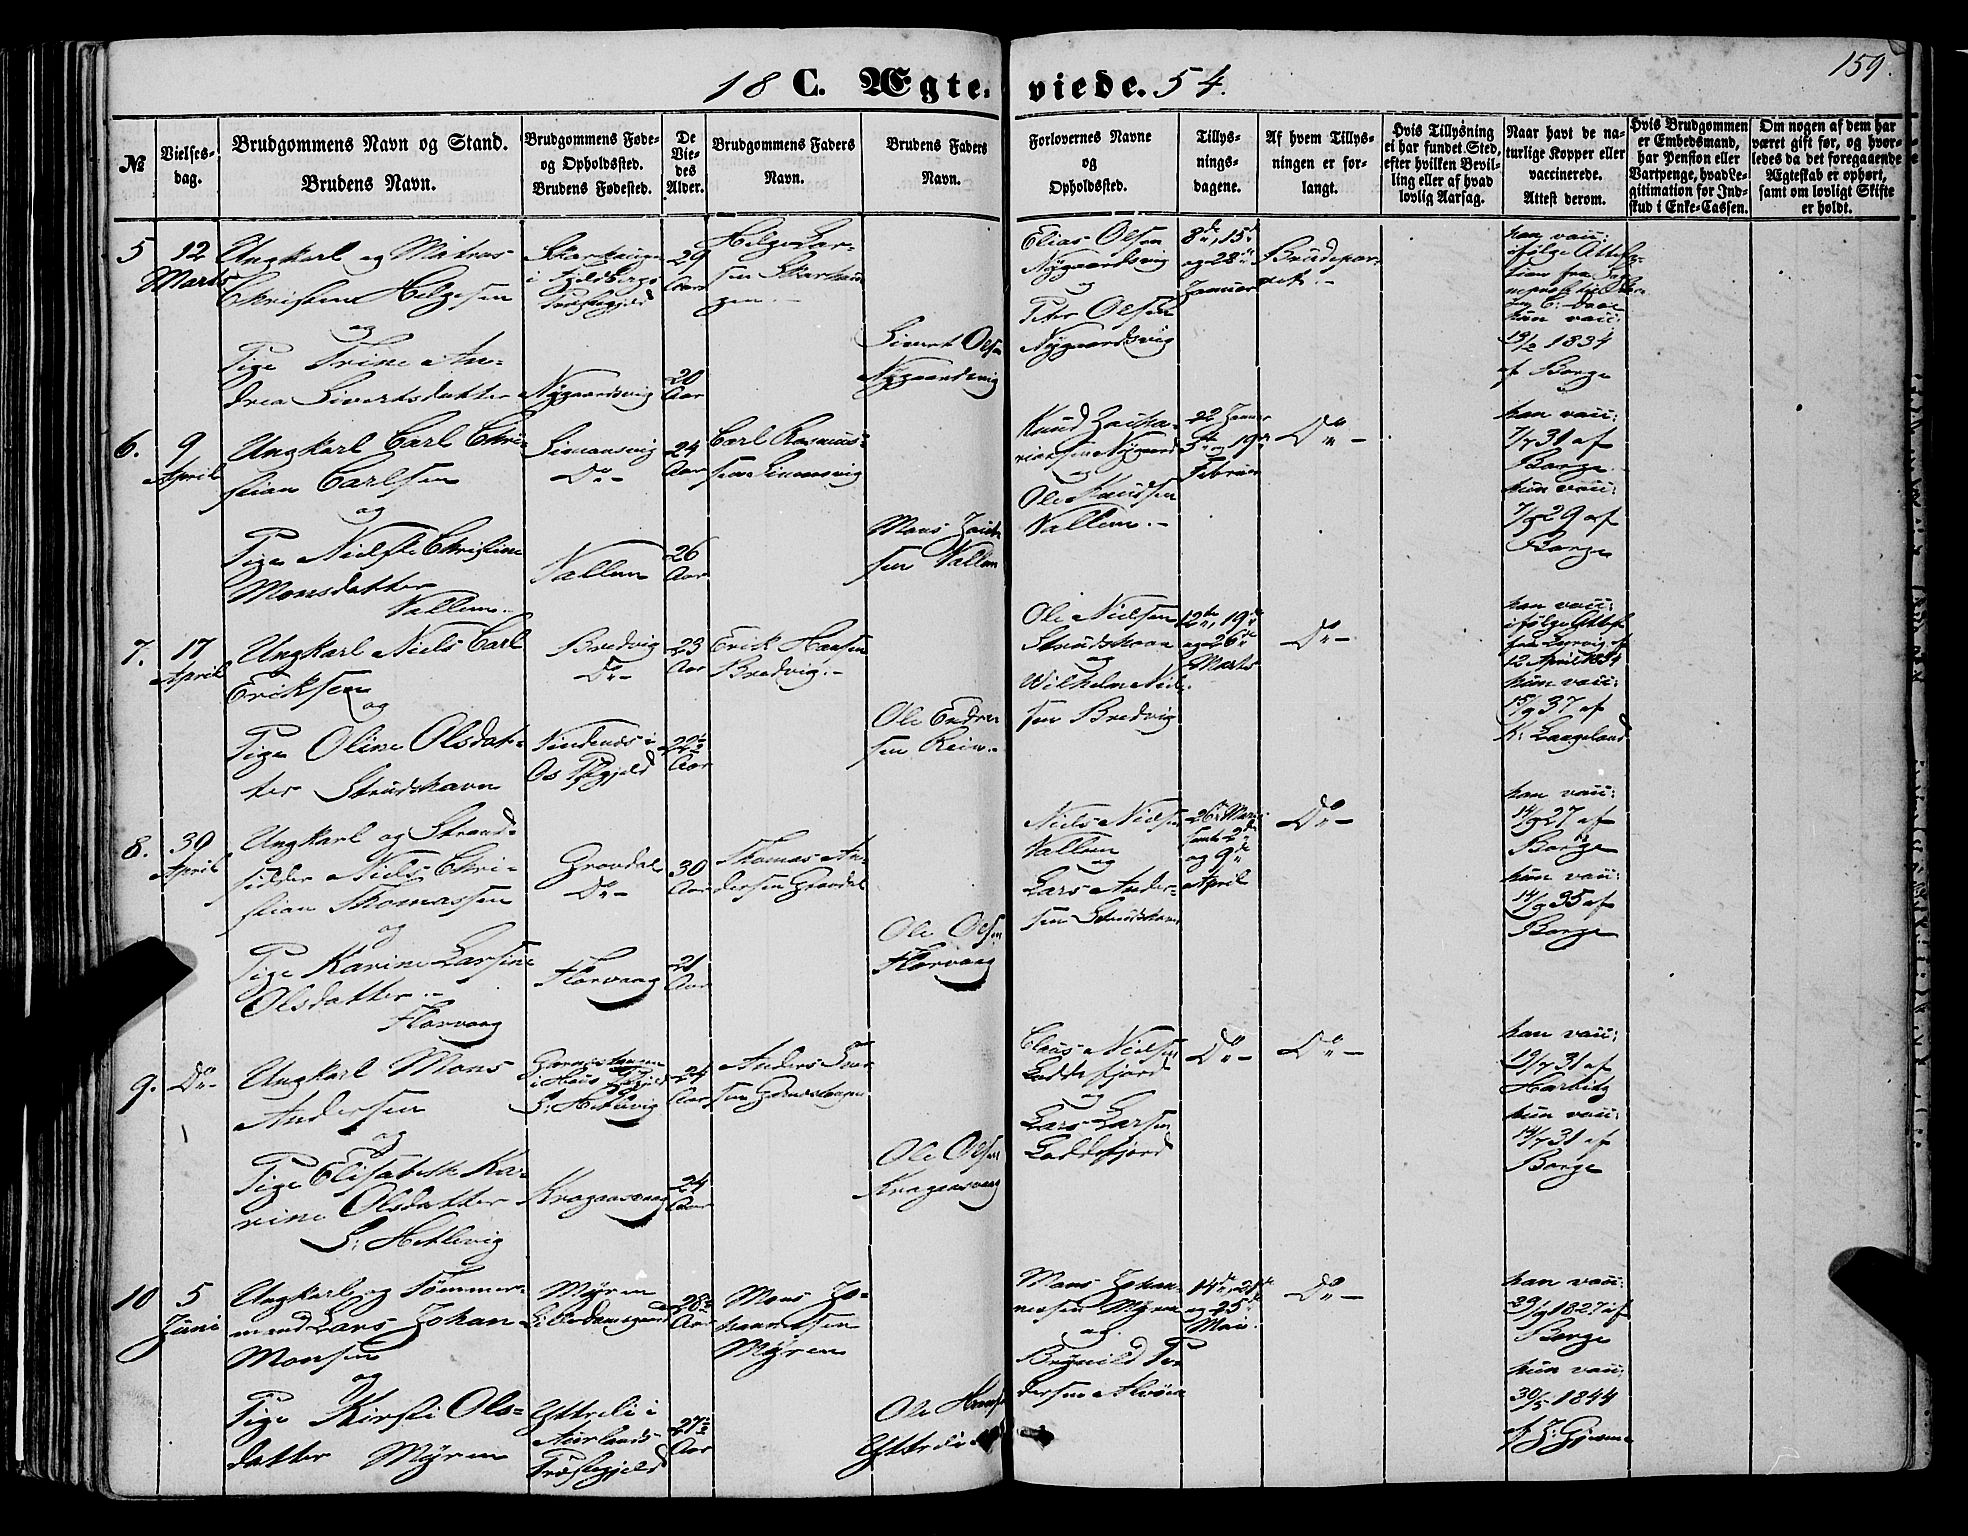 159.
18 C. Ægte- viede. 54.
№
Vielses-
dag.
Brudgommens Navn og Stand.
Brudens Navn.
Brudgommens Føde-
og Opholdssted.
Brudens Fødested.
De
Vie-
des
Alder.
Brudgommens Faders
Navn.
Brudens Faders
Navn.
Forlovernes Navne
og
Opholdssted.
Tillys-
nings-
dagene.
Af hvem Tillys-
ningen er for-
langt.
Hvis Tillysning
ei har fundet Sted,
efter hvilken Bevil-
ling eller af hvad
lovlig Aarsag.
Naar havt de na-
turlige Kopper eller
vaccinerede.
Attest derom.
Hvis Brudgommen
er Embedsmand,
har Pension eller
Vartpenge, hvad Le-
gitimation for Ind-
skud i Enke-Cassen.
Om nogen af dem har
været gift før, og hvor-
ledes da det foregaaende
Ægteskab er ophørt,
samt om lovligt Skifte
er holdt.
5
12
Marts
Ungkarl og Matros
Christen Helgesen
og
Pige Trine An-
drea Sivertsdatter
i
Præstegjeld
Nygaardsvig
29
Aar
20
Aar
Helge Lar-
sen
Sivert Olsen
Nygaardsvig
Elias Olsen
Nygaardsvig
og
Peter Olsen
Nygaardsvig
8de, 15de
og 28de
Januar
Brudepar-
ret.-
han vacc:
ifølge Attesta-
tion fra
hun vacc:
19/2 1834
af Borge
6.
9
April
Ungkarl Carl Chri-
stian Carlsen
og
Pige Nielste Christine
Monsdatter
Vallem.
Simonsvig
Do-
Vallem
24
Aar
26
Aar
Carl Rasmus-
sen Simonsvig
Mons
sen Vallem
Knud Zacha-
riasen Nygaard
og
Ole Knudsen
Vallem.-
22 Januar
5te og 19de
Februar
Do-
han vacc:
7/7 31 af
Borge.
hun vacc:
7/9 29 af
Borge
7.
17
April
Ungkarl Niels Carl
Eriksen
og
Pige Oline Olsdat-
ter Strudshavn
Bredvig
Do-
Vindenes i
Os Pgjeld
23
Aar
22½
Aar
Erick Hansen
Bredvig.-
Ole Endre-
sen Rein.-
Ole Nielsen
Strudshavn
og
Wilhelm Niel-
sen Bredvig
12te, 19de
og 26de
Marts
Do-
han vacc:
ifølge Attest
fra Lervig af
12 April 1854
hun vacc:
15/9 37 af
K: Laageland
8.
30
April
Ungkarl og Strand-
sidder Niels Chri-
stian Thomassen
og
Pige Karine Larsine
Olsdatter.-
Florvaag
Gravdal
Do-
Florvaag
30
Aar
21
Aar
Thomas An-
dersen Gravdal
Ole Olsen
Florvaag
Niels Nielsen
Vallem
og
Lars Ander-
sen Strudshavn
26de Marts
samt 2den
og 9de
April
Do-
han vacc:
14/9 27 af
Borge
hun vacc:
14/9 35 af
Borge
9.
Do-
Ungkarl Mons
Andersen
og
Pige Elisabeth Ka-
rine Olsdatter
S: Hetlevig
i Haus Pgjeld
S: Hetlevig
Kragaasvaag
24
Aar
24
Aar
Anders
sen
Ole Olsen
Kragaasvaag
Claus Nielsen
Loddefjord
og
Lars Larsen
Loddefjord
Do-
Do-
han vacc:
19/7 31 af
hun vacc:
14/7 31 af
Borge
10
5
Juni
Ungkarl og Tømmer-
mand Lars Johan
Monsen
og
Pige Kirsti Ols-
datter Myren
Myren
Yttreli i
Aurlands
Præstegjeld
28½
Aar
27½
Aar
Mons Jo-
hannesen
Myren
Ole Hansen
Yttreli
Mons Johan-
nesen Myren
og
Brynild Pe-
dersen Alvøen
14de, 21de
og 25de
Mai.
Do-
han vacc:
29/9 1827 af
Borge
hun vacc:
30/5 1844
af J: Gjerme